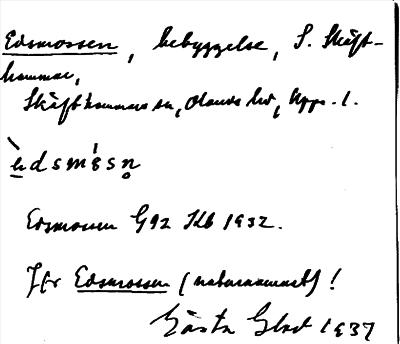 Edsmossen, bebyggelse, S. Skäft-
hammar,
Skäfthammars sn, Olands hd, Upps. l.
èdsmʹɵsn̥
Edsmossen G92 Skb 1932.
Jfr Edsmossen (naturnamnet)!
Gösta 1937